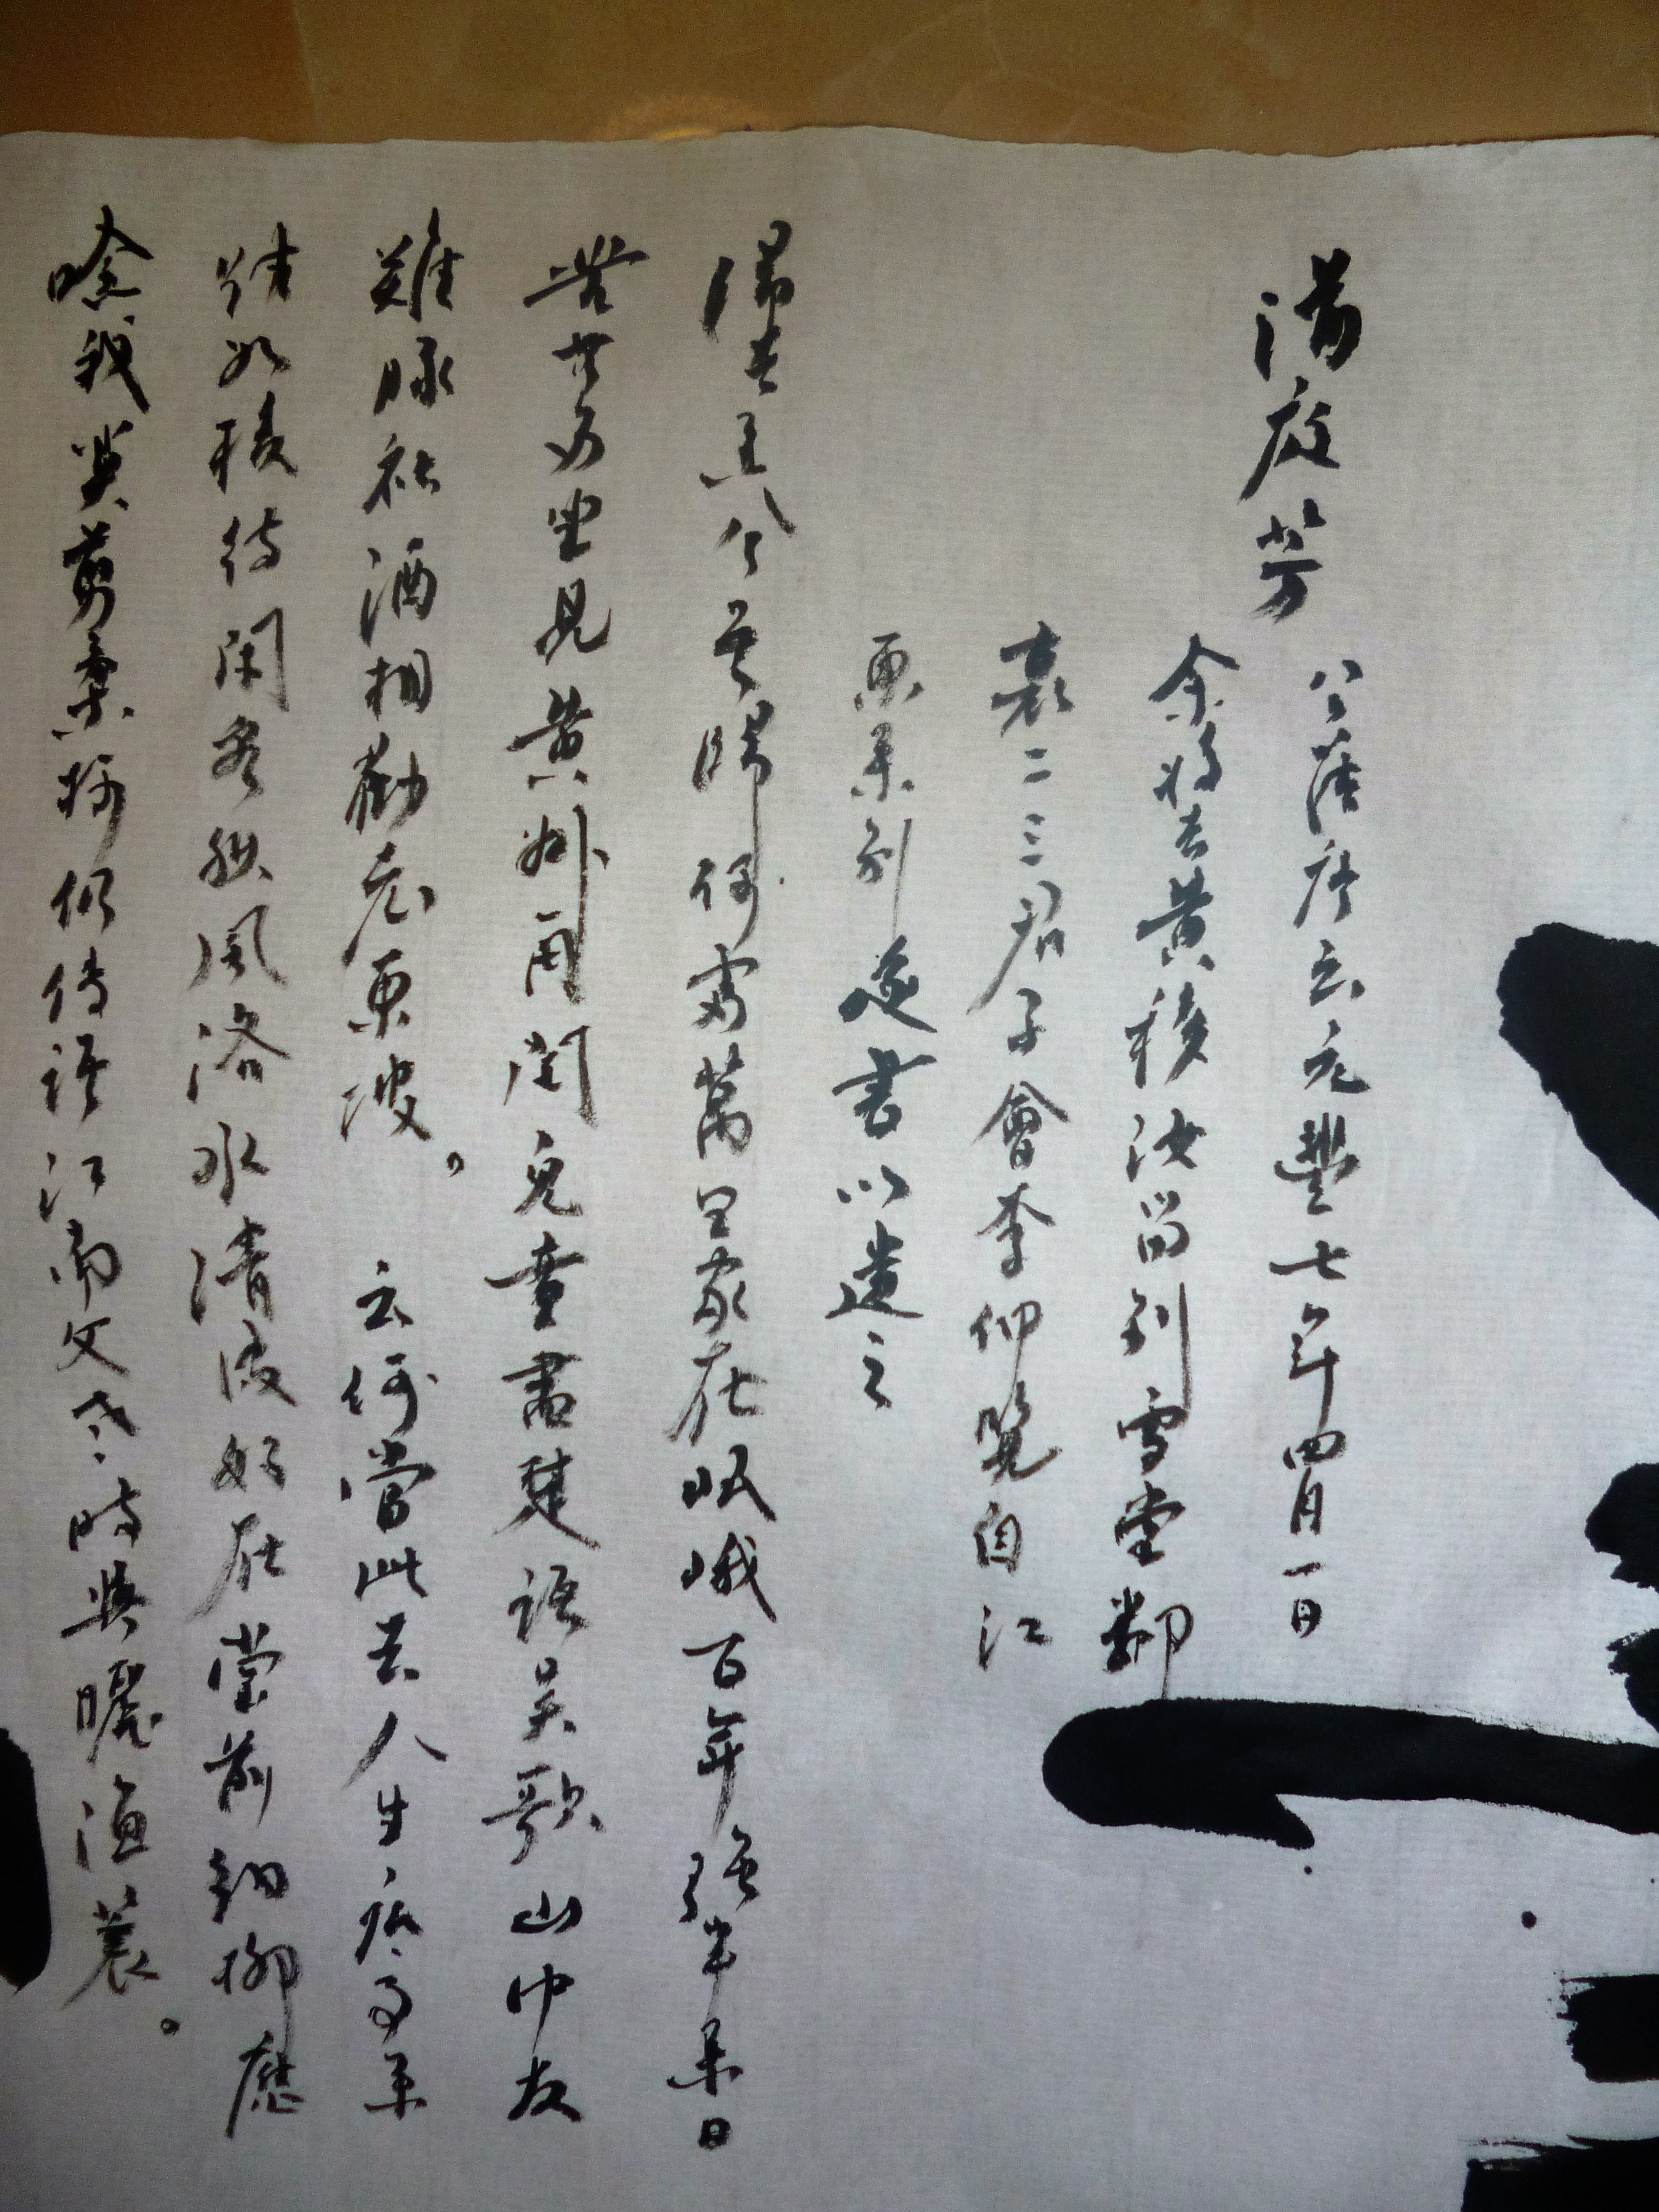 滿庭芳 公舊序云元豐七年四月一日
余將去黃移汝留別雪堂鄰
裏二三君子會李仰覽自江
東來別遂書以遺之
歸去來兮吾歸何處萬里家在岷峨百年強半來日
苦無多坐見黃州再閏兒童盡楚語吳歌山中友
雞豚社酒相勸老東坡。 云何當此去人生底事來
往如梭待閑看秋風洛水清波好在堂前細柳應
唸我莫剪柔柯仍傳語江南父老時與曬漁蓑。